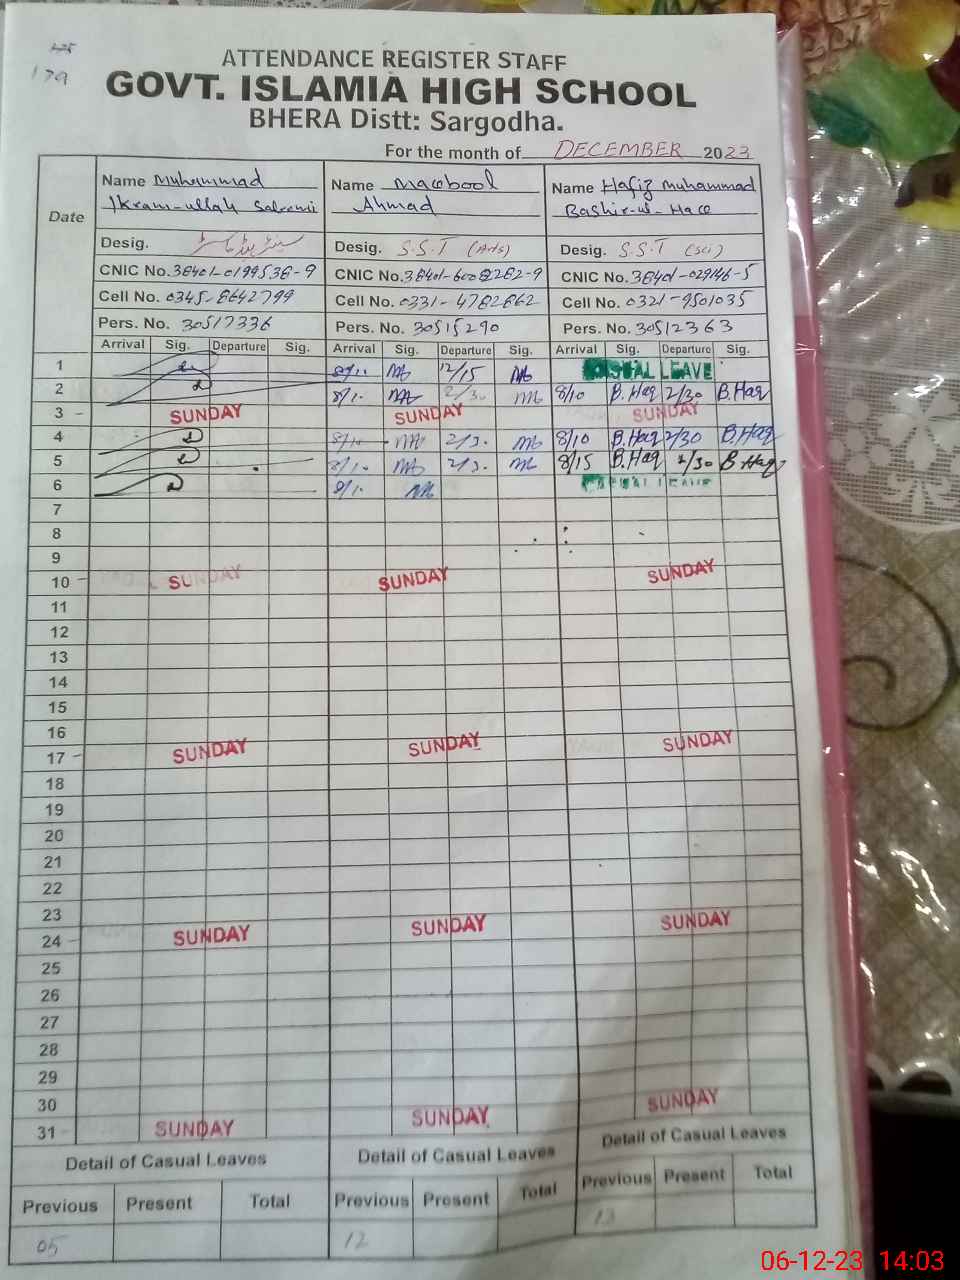 179
ATTENDANCE REGISTER STAFF
GOVT. ISLAMIA HIGH SCHOOL
BHERA Distt: Sargodha.
For the month of DECEMBER 2023
Date
Name Muhammad Ikram-ullah Saleemi
Name Maqbool Ahmad
Name Hafiz Muhammad Bashir-ul-Haq
Desig.
Desig. S.S.T (Arts)
Desig. S.S.T (Sci)
CNIC No. 38401-0199538-9
CNIC No. 38401-6008282-9
CNIC No. 38401-029146-5
Cell No. 0345-8642799
Cell No. 0331-4782862
Cell No. 0321-9501035
Pers. No. 30517336
Pers. No. 30515290
Pers. No. 30512363
Arrival Sig. Departure Sig. Arrival Sig. Departure Sig. Arrival Sig. Departure Sig.
1 8/10 12/15 CASUAL LEAVE
2 8/10 2/30 8/10 B.Haq 2/30 B.Haq
3 SUNDAY SUNDAY SUNDAY
4 8/10 2/30 8/10 B.Haq 2/30 B.Haq
5 8/10 2/30 8/15 B.Haq 2/30 B.Haq
6 8/10 CASUAL LEAVE
7
8
9
10 SUNDAY SUNDAY SUNDAY
11
12
13
14
15
16
17 SUNDAY SUNDAY SUNDAY
18
19
20
21
22
23
24 SUNDAY SUNDAY SUNDAY
25
26
27
28
29
30
31 SUNDAY SUNDAY SUNDAY
Detail of Casual Leaves Detail of Casual Leaves Detail of Casual Leaves
Previous Present Total Previous Present Total Previous Present Total
05 12 13
06-12-23 14:03